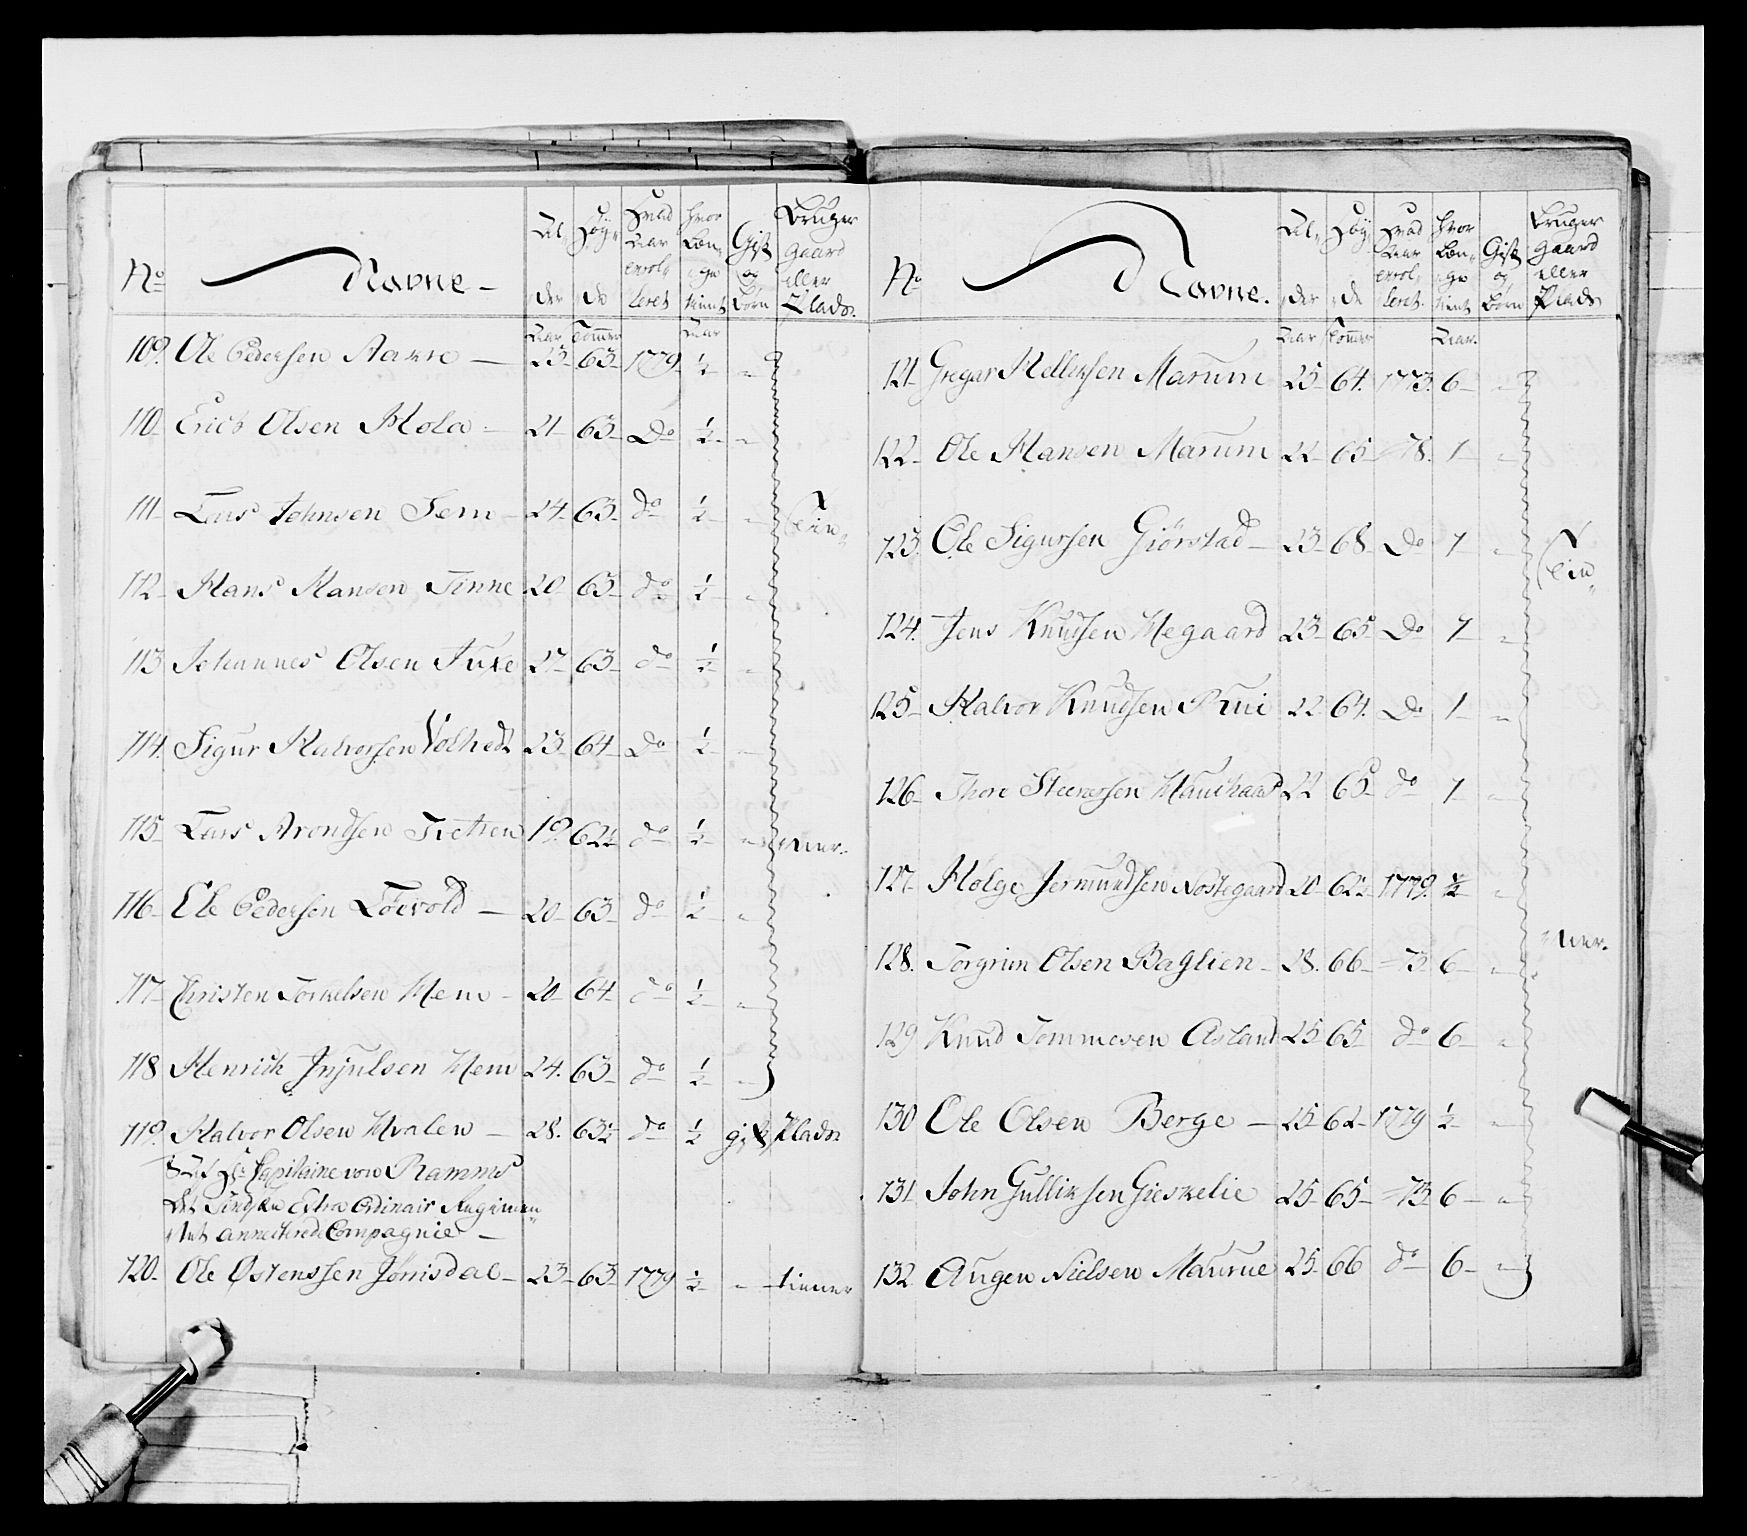 No Navne Al,, der Høy,, de Hvad Aar enrol,, leret Hvor læn,, ge tient Gift og Børn Bruger Gaard eller Plads.
Aar Tommer Aar
109. Ole Pedersen Aakre — 23 63 1779 ½ „
110 Erich Olsen Kola 21 63 Do ½ „
111 Lars Johnsen Sem 24 63 do ½ „
112 Hans Hansen Tinne 20 63 do ½ „
113 Johannes Olsen Juxe 27 63 do ½ „
114. Sigur Halvorsen 23 64 Do ½ „
115 Lars Arondsen Tvetten 19. 62½ do ½ „
116 Ole Pedersen — 20 63 do ½ „
117 Christen Torkelsen Hem 20 64 do ½ „
118 Henrich Injulsen Hem 24. 63 do ½ „
Tie,,
ner.
119. Halvor Olsen Hvalen — 28. 63½ do ½ gift Plads
Af Hr Capitaine von Ramms
Extra Ordinair Regimen,,
tet annecterede Compagnie —
120. Ole Østenssen Jønsdal 23 63 1779 ½ „ tiener
No Navne. Al,, der Høy,, de Hvad Aar enrol,, leret. Hvor læn,, ge tient Gift og Børn Bruger Gaard eller Plads
Aar Tommer Aar.
121. Gregar Kelleksen Marum 25 64. 1773. 6 „
122 Ole Hansen Marum 22 65 =78. 1 „
123. Ole Sigursen Giørstad 23 68 Do 1 „
124. Jens Knudsen Megaard 23 65 Do 1 „
125 Halvor Knudsen Rui 22 64. Do 1 „
126 Thore Steenersen 22 65 do 1 „
127 Holge Jermundsen Nostegaard 20 62½ 1779. ½ „
128. Torgrim Olsen Baglien 28. 66 =73 6 „
129 Knud Tommesen Asland 25 65 do 6 „
130 Ole Olsen Berge — 25 62 1779 ½ „
131 John Gulliksen Gieskelie 25 65 =73 6 „
132 Augen Nielsen Maurue 25 66 do 6 „
Tie,,
ner.